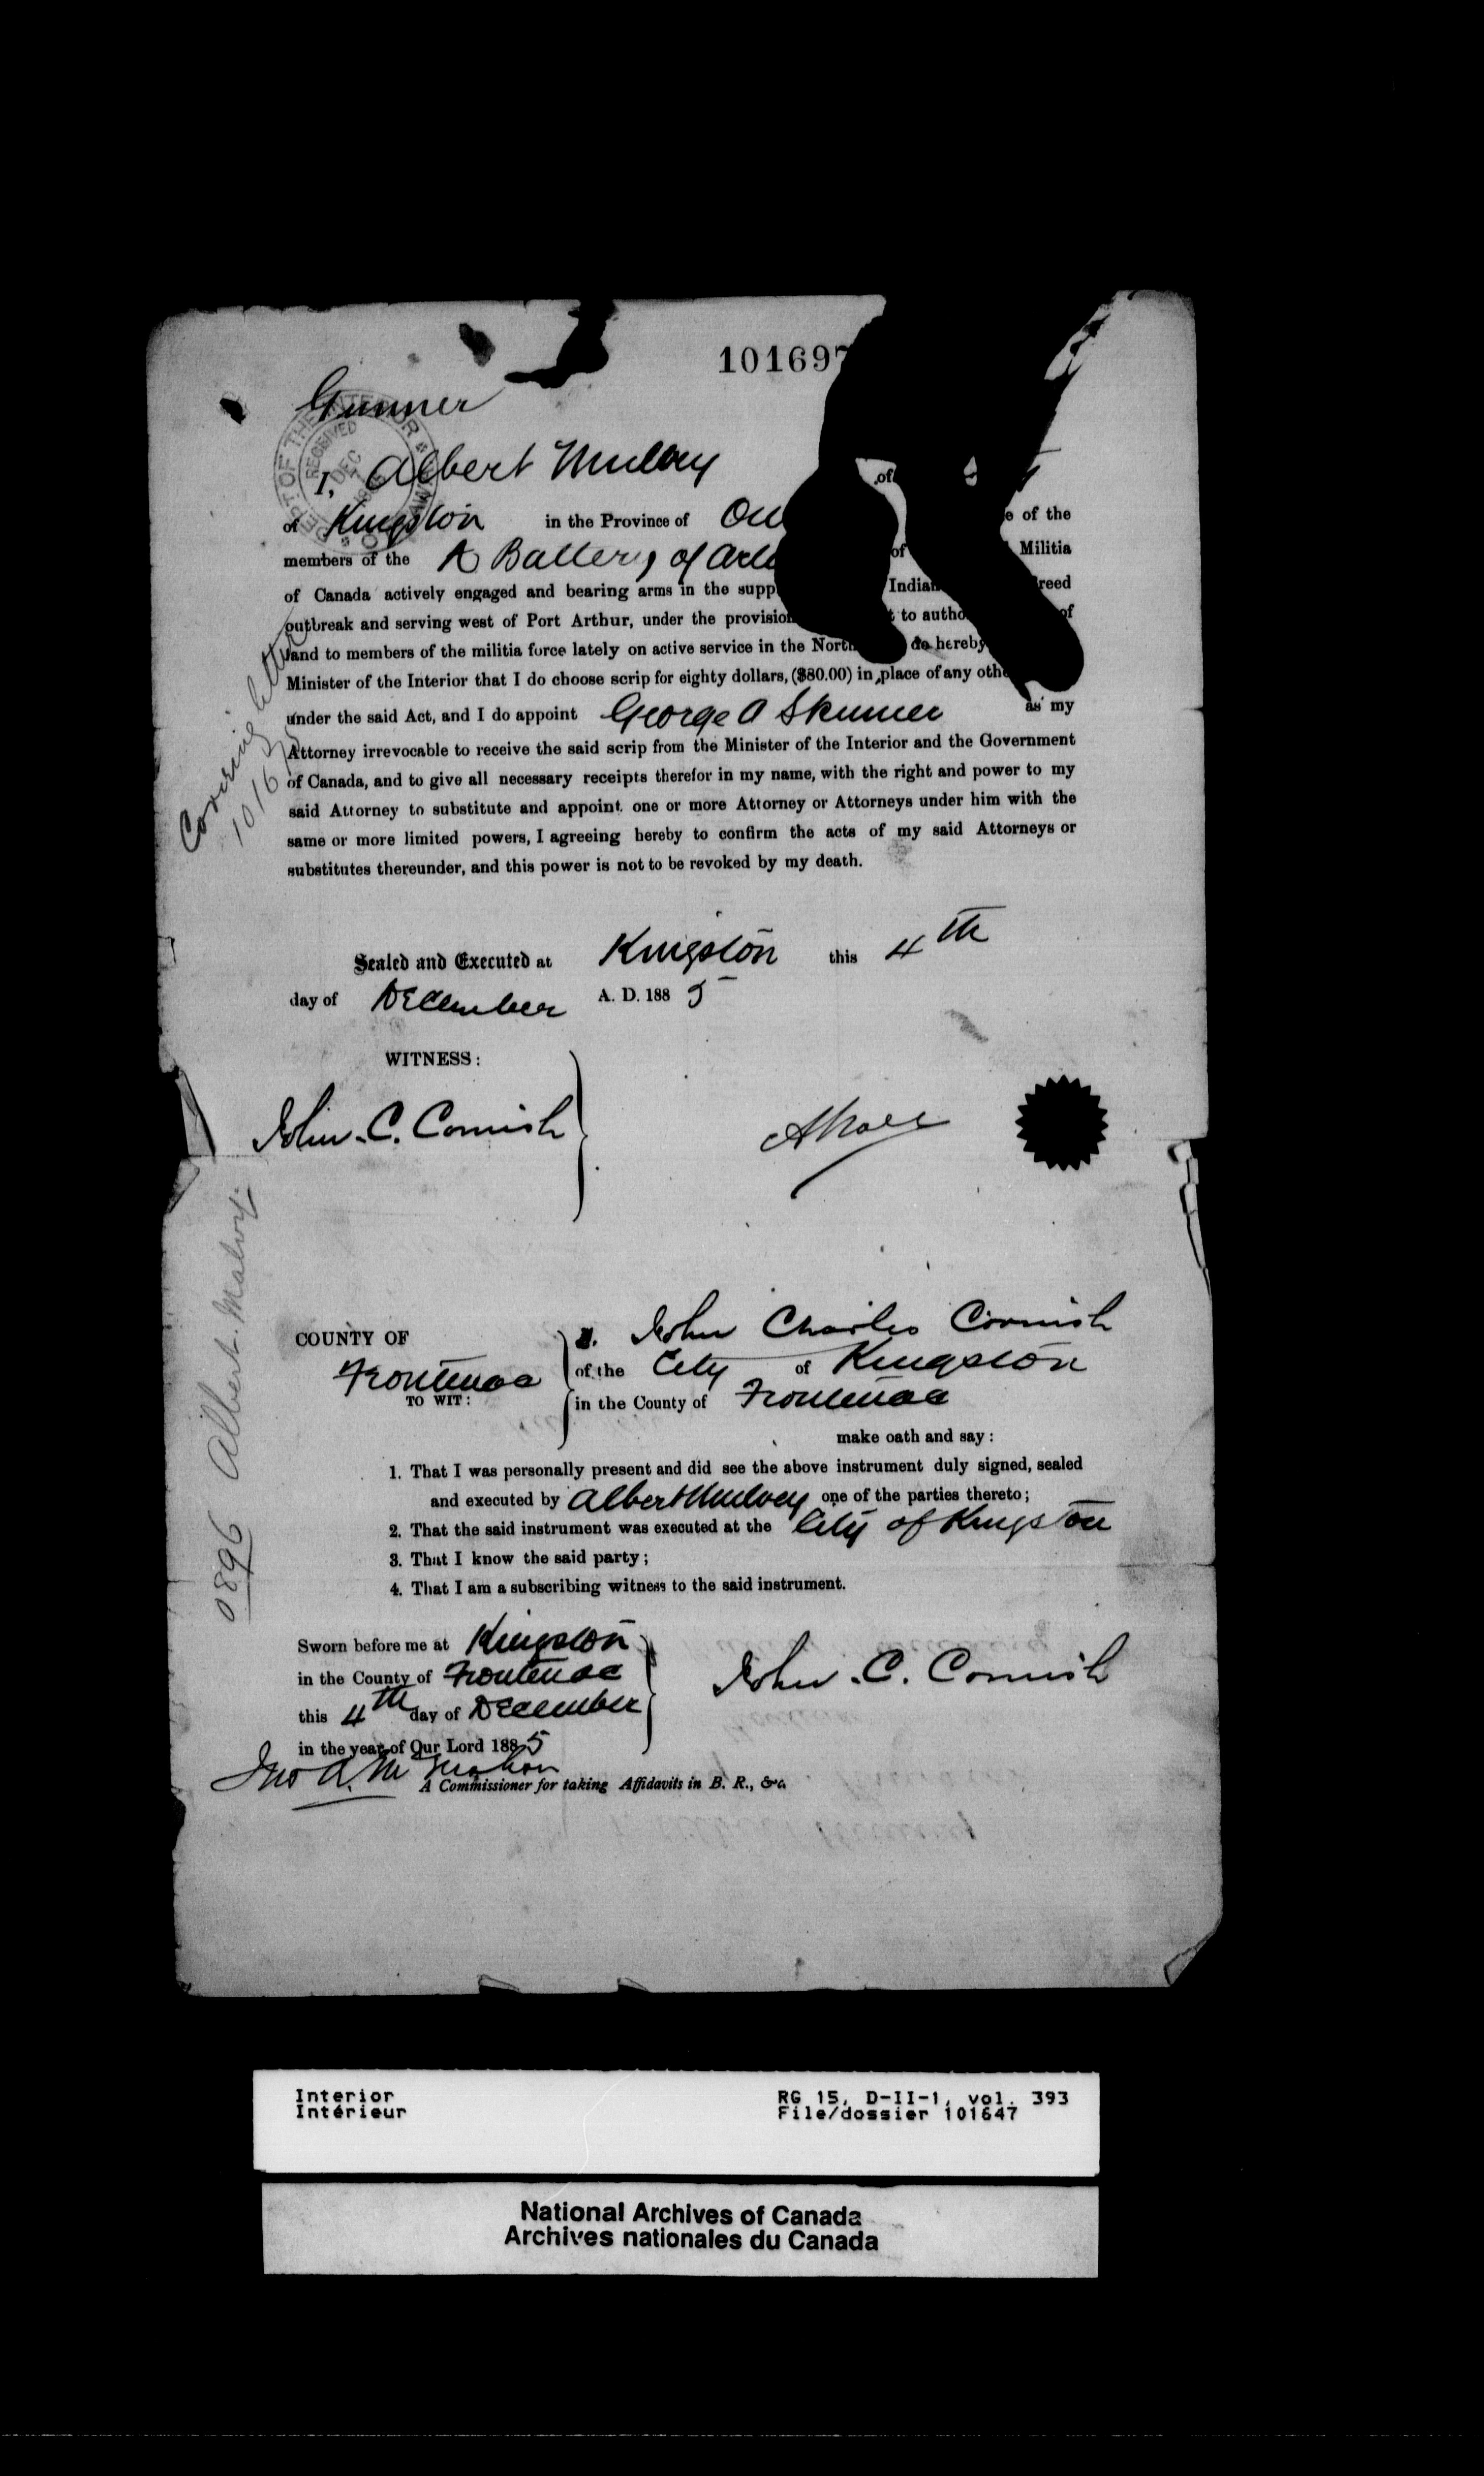 101697
Gunner
DEPT OF THE INTERIOR
RECEIVED
DEC
I, Albert Mulvey of
of Kingston in the Province of e of the
members of the A Battery of of Militia
of Canada actively engaged and bearing arms in the supp Indian reed
outbreak and serving west of Port Arthur, under the provision t to autho of
land to members of the militia force lately on active service in the North do hereby
Minister of the Interior that I do choose scrip for eighty dollars, ($80.00) in place of any othe
under the said Act, and I do appoint George A Skinner as my
Attorney irrevocable to receive the said scrip from the Minister of the Interior and the Government
of Canada, and to give all necessary receipts therefor in my name, with the right and power to my
said Attorney to substitute and appoint one or more Attorney or Attorneys under him with the
same or more limited powers, I agreeing hereby to confirm the acts of my said Attorneys or
substitutes thereunder, and this power is not to be revoked by my death.
Covering letter
Sealed and Executed at Kingston this 4th
day of December A. D. 1885
WITNESS:
John. C. Cornish
COUNTY OF
Frontenac
TO WIT:
I. John Charles Cornish
of the City of Kingston
in the County of Frontenac
make oath and say:
1. That I was personally present and did see the above instrument duly signed, sealed
and executed by Albert Mulvey one of the parties thereto;
2. That the said instrument was executed at the City of Kingston
3. That I know the said party;
4. That I am a subscribing witness to the said instrument.
0896 Albert Malvy.
Sworn before me at Kingston
in the County of Frontenac
this 4th day of December
in the year of Our Lord 1885
John. C. Cornish
A Commissioner for taking Affidavits in B. R., &c.
Interior
Intérieur
RG 15, D-II-1, vol. 393
File/dossier 101647
National Archives of Canada
Archives nationales du Canada